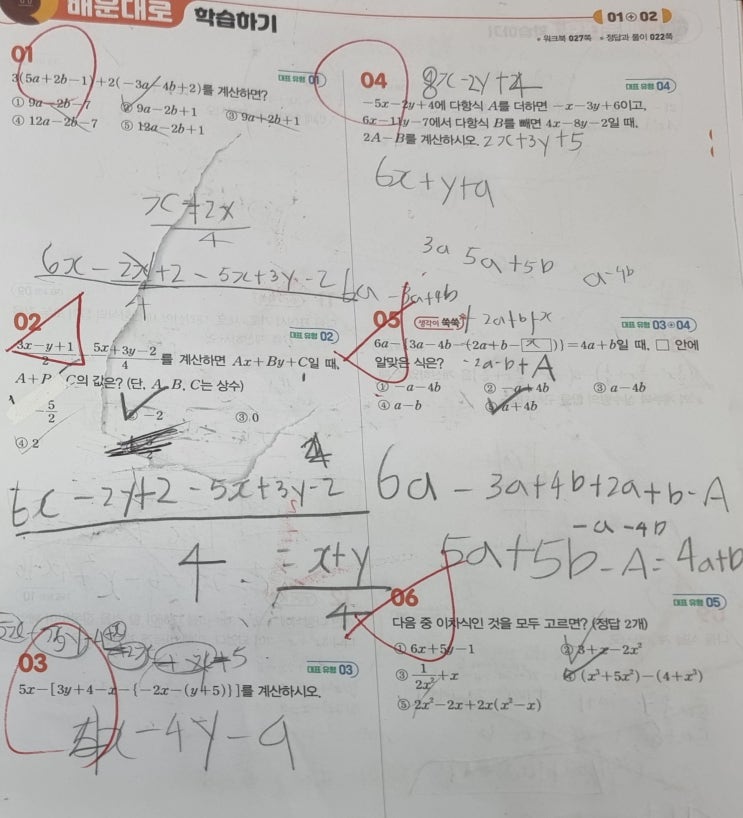 배운대로 학습하기
01⊕02
• 워크북 027쪽 • 정답과 풀이 022쪽
01
대표 유형 01
3(5a+2b-1)+2(-3a-4b+2)를 계산하면?
① 9a-2b-7 ② 9a-2b+1 ③ 9a+2b+1
④ 12a-2b-7 ⑤ 12a-2b+1
x+2x
4
6x-2y+2-5x+3y-2
4
02
대표 유형 02
3x-y+1/2 - 5x+3y-2/4 를 계산하면 Ax+By+C일 때,
A+B C의 값은? (단, A, B, C는 상수)
-5/2 ② -2 ③ 0
④ 2
6x-2y+2-5x+3y-2
4
= x+y
4
03
대표 유형 03
5x-[3y+4-x-{-2x-(y+5)}]를 계산하시오.
4x-4y-9
04
8x-2y+4
대표 유형 04
-5x-2y+4에 다항식 A를 더하면 -x-3y+6이고,
6x-11y-7에서 다항식 B를 빼면 4x-8y-2일 때,
2A-B를 계산하시오. 2x+3y+5
6x+y+9
3a 5a+5b a-4b
6a-3a+4b
+2a+b+x
05
생각이 쑥쑥
대표 유형 03⊕04
6a-{3a-4b-(2a+b-□)}=4a+b일 때, □ 안에
알맞은 식은? -2a-b+A
① -a-4b ② -a+4b ③ a-4b
④ a-b ⑤ a+4b
6a-3a+4b+2a+b-A
-a-4b
5a+5b-A=4a+b
06
대표 유형 05
다음 중 이차식인 것을 모두 고르면? (정답 2개)
① 6x+5y-1 ② 3+x-2x²
③ 1/2x²+x ④ (x³+5x²)-(4+x³)
⑤ 2x²-2x+2x(x²-x)